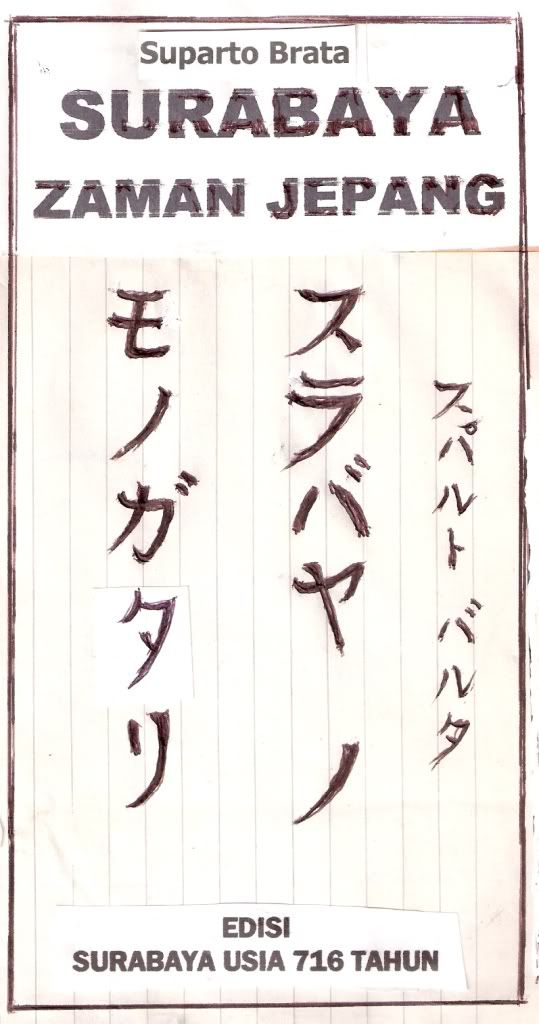 Suparto Brata
SURABAYA
ZAMAN JEPANG
スパルト バルタ
スラバヤ ノ
モノガタリ
EDISI
SURABAYA USIA 716 TAHUN